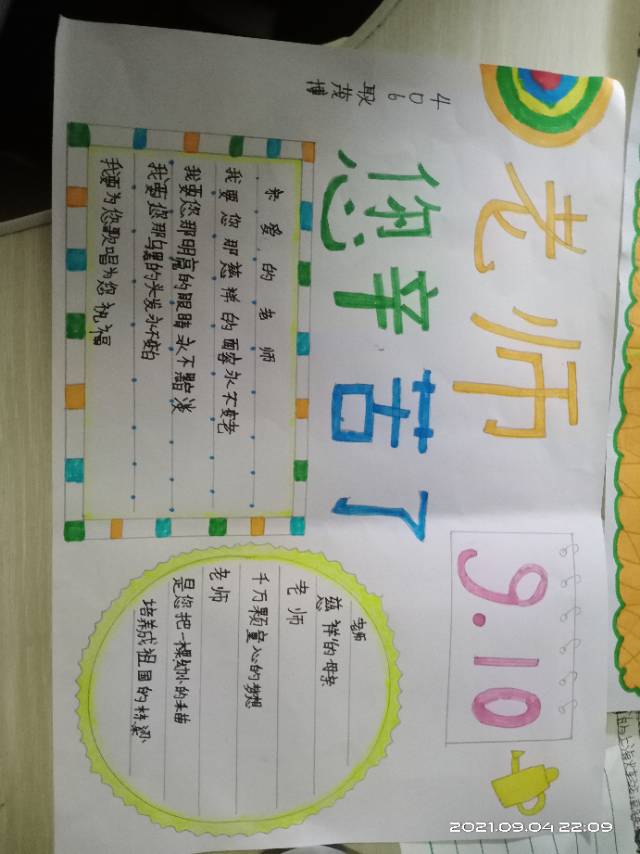 406
耿茂博
老师
您辛苦了
9.10
亲爱的老师
我要您那慈祥的面容永不变老
我要您那明亮的眼睛永不黯淡
我要您那乌黑的头发永不变白
我要为您歌唱为您祝福
老师
慈祥的母亲
老师
千万颗童心的梦想
老师
是您把一棵幼小的禾苗
培养成祖国的栋梁
2021.09.04 22:09